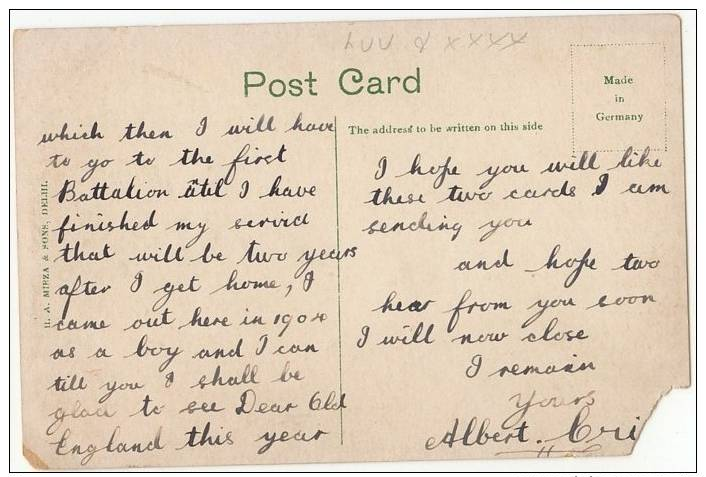 Post Card
Made
in
Germany
The address to be written on this side
H. A. MIRZA & SONS, DELHI.
which then I will have
to go to the first
Battalion util I have
finished my servid
that will be two years
after I get home, I
came out here in 1904
as a boy and I can
till you I shall be
glad to see Dear Old
England this year
I hope you will like
these two cards I am
sending you
and hope two
hear from you soon
I will now close
I remain
Yours
Albert. Cri